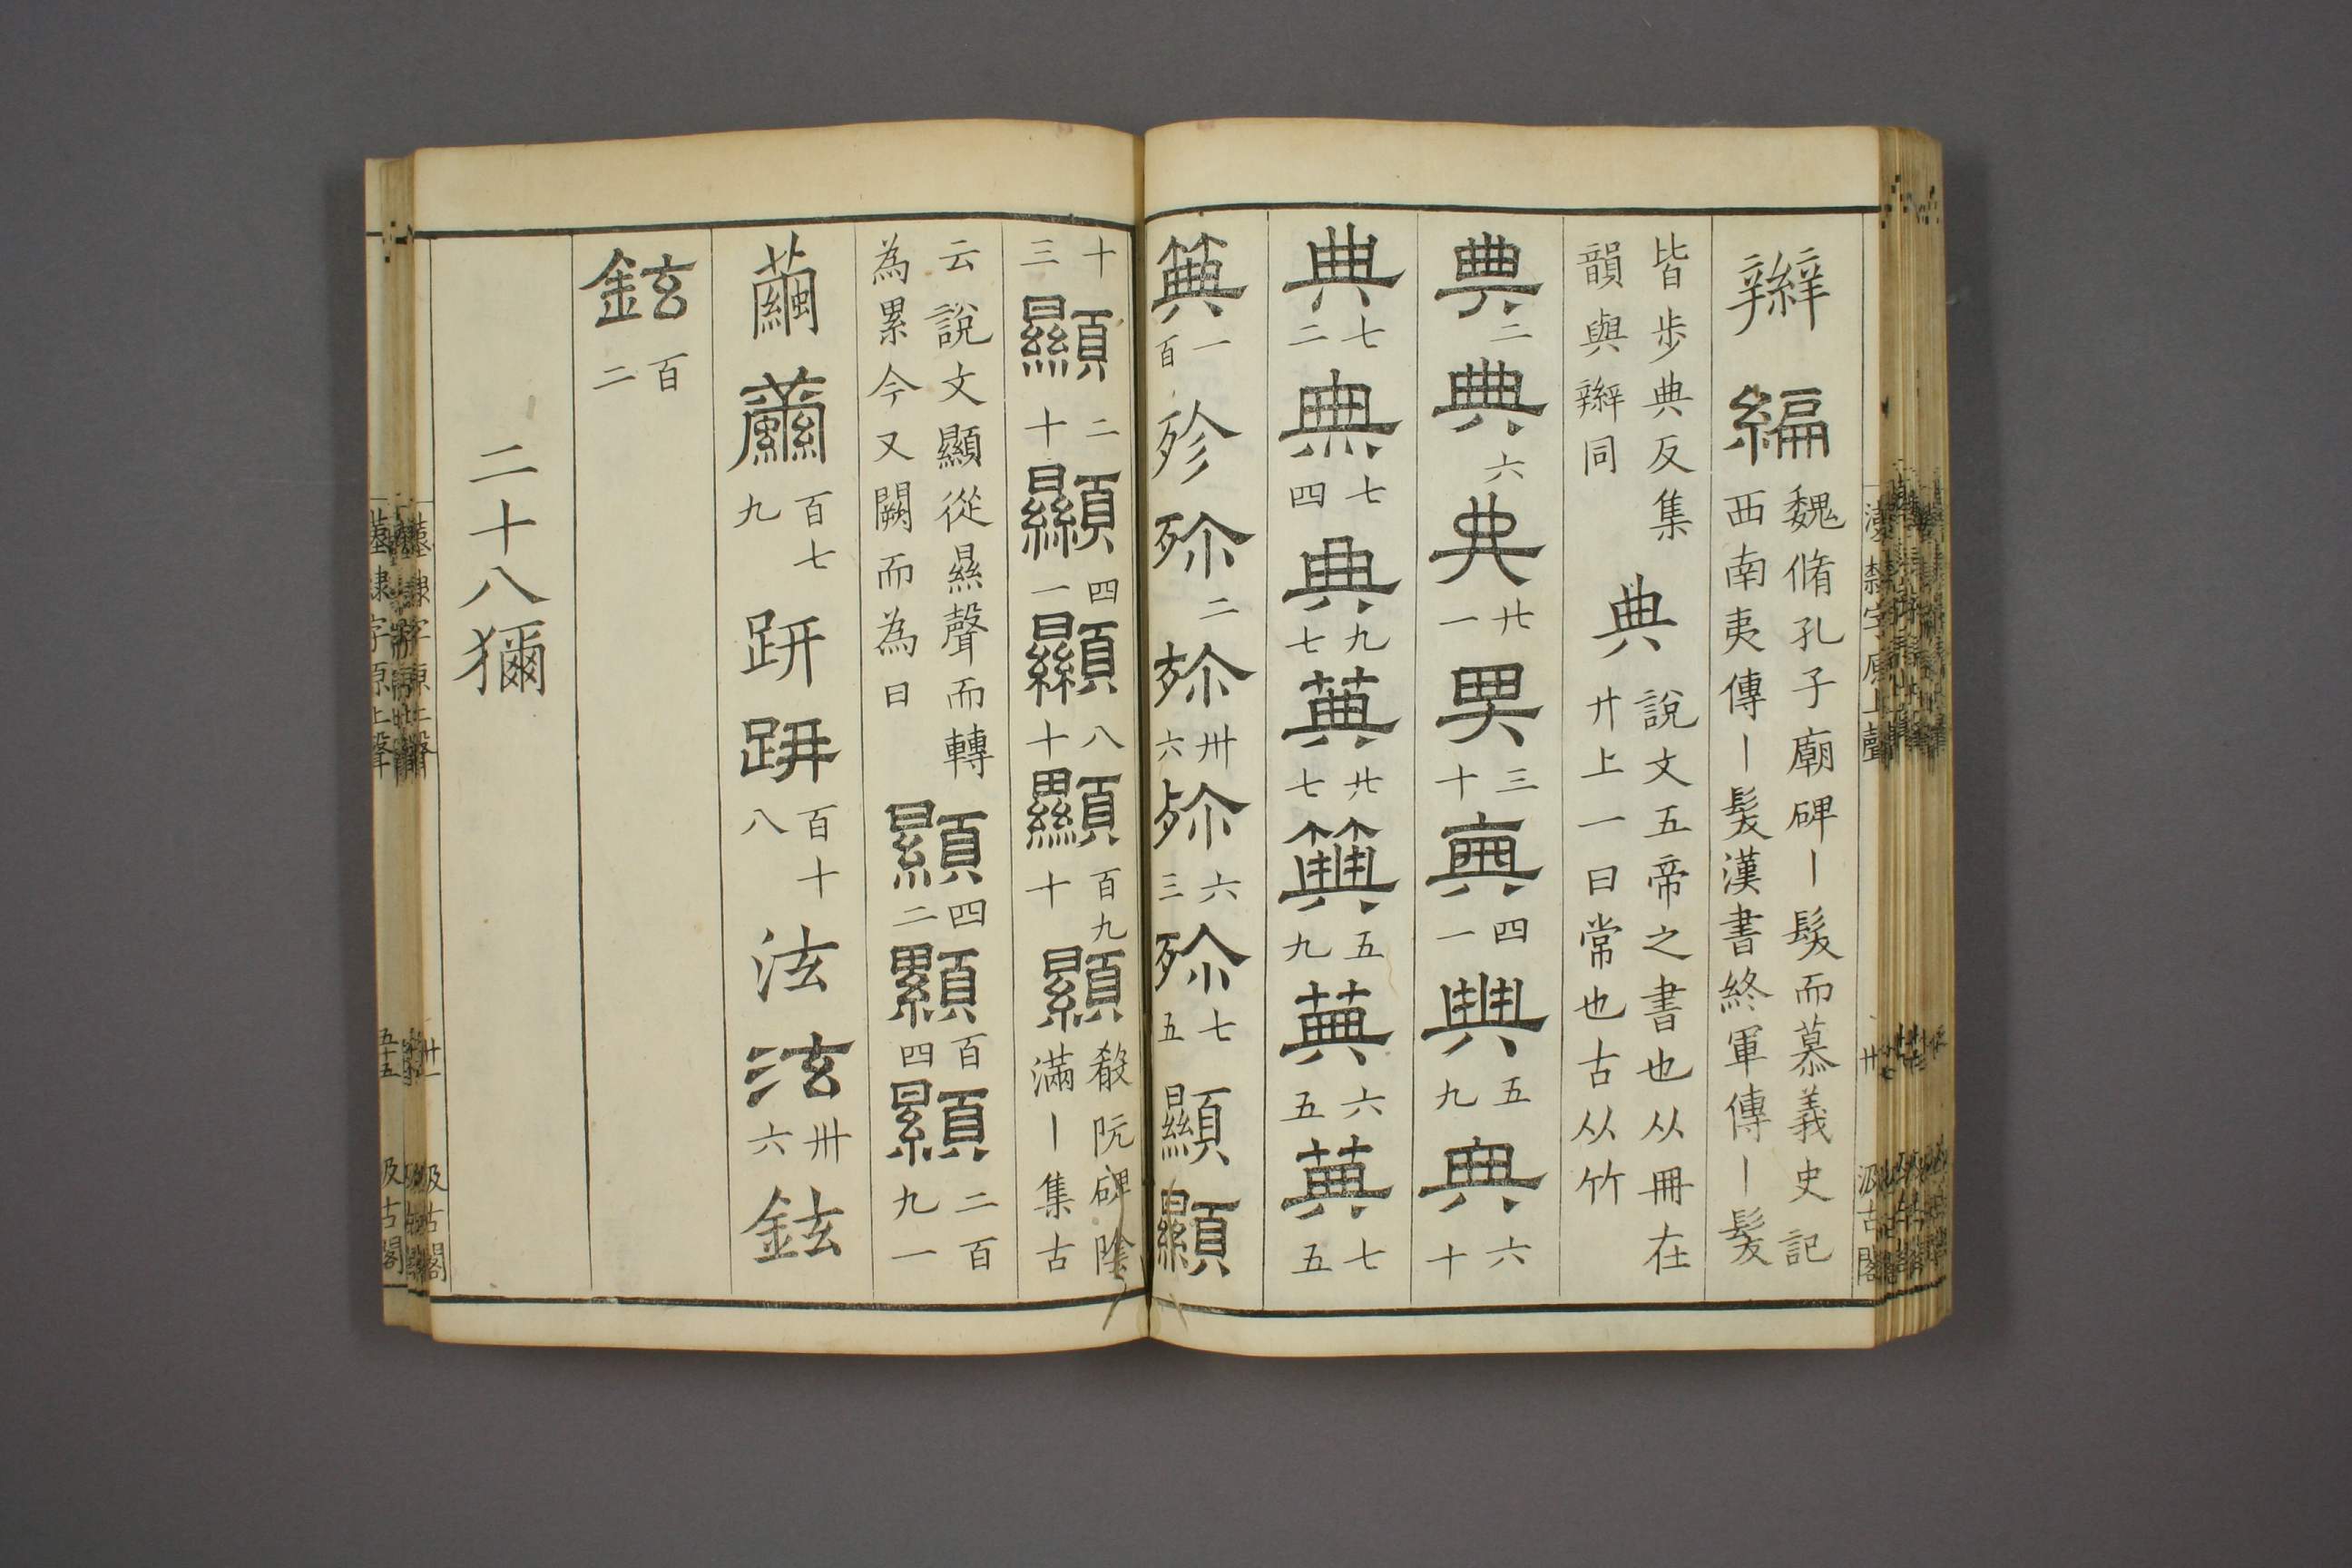 辮編魏脩孔子廟碑丨髮而慕義史記
西南夷傳丨髮漢書終軍傳丨髮
皆歩典反集
韻與辮同
典說文五帝之書也从冊在
廾上一曰常也古从竹
典二典六典廿一典三十典四一典五九典六十
典七二典七四典九七典廿七典五九典六五典七五
典一百殄殄二殄卅六殄六三殄七五顯顯
十三顯二十顯四一顯八十顯百九十顯殽阬碑陰
滿丨集古
云說文顯從㬎聲而轉
為累今又闕而為日
顯四二顯百四顯二百九一
繭繭百七九趼趼百十八泫泫卅六鉉
鉉百二
二十八獮
漢隸字原上聲
廿
汲古閣